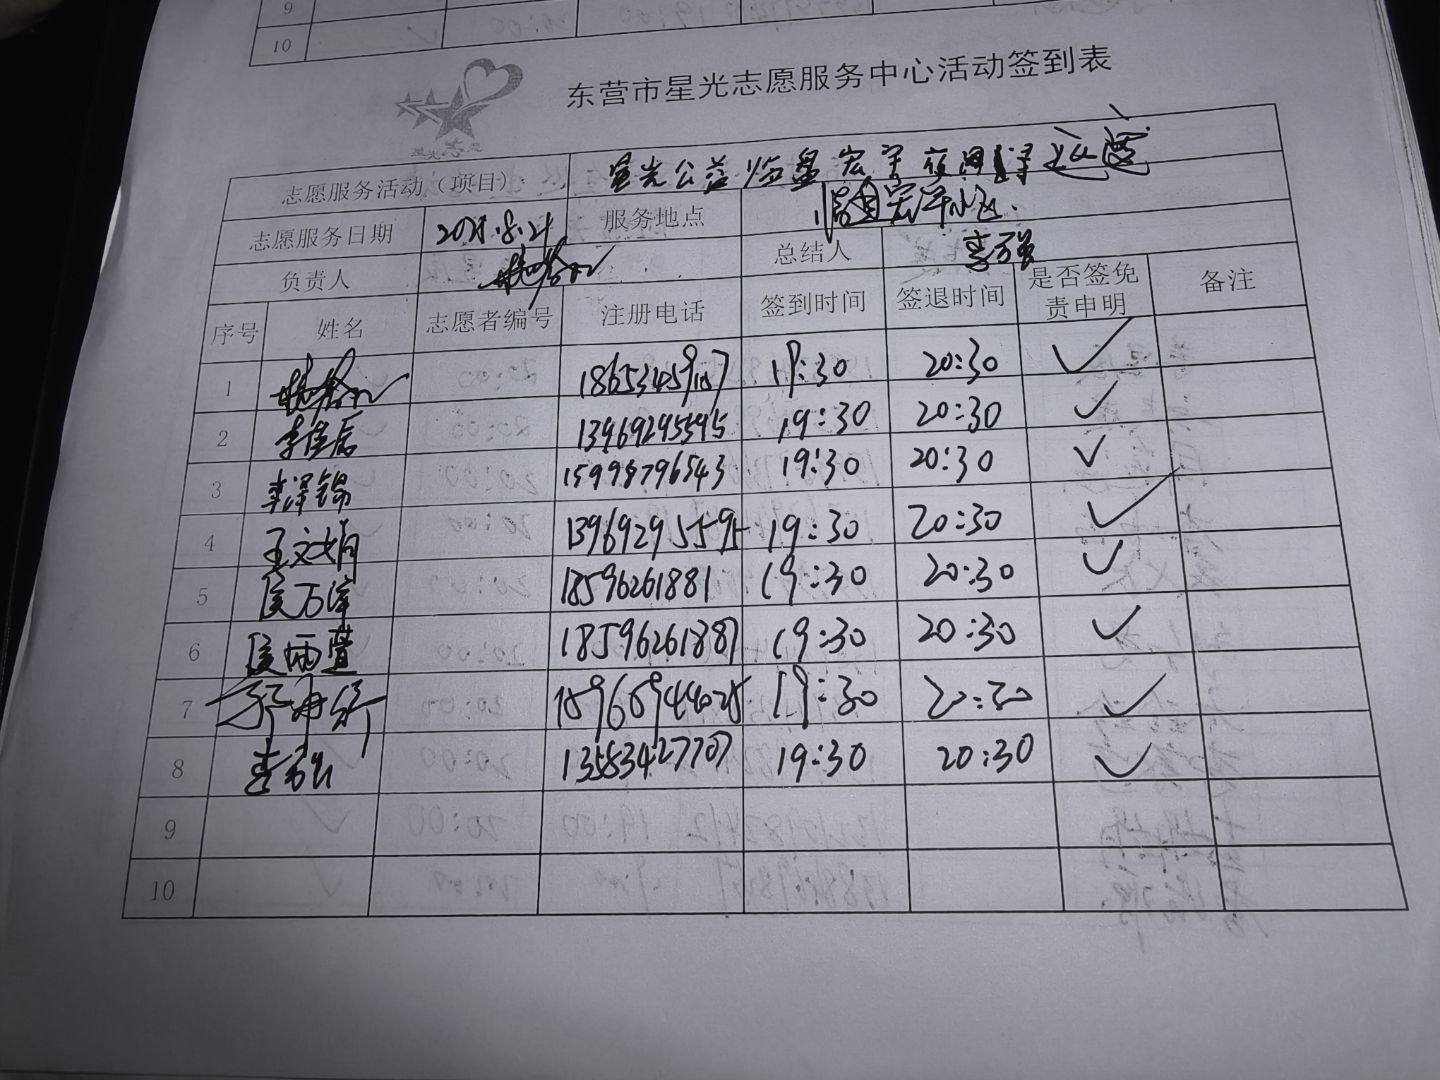 9
10
东营市星光志愿服务中心活动签到表
志愿服务活动（项目）: 星光公益临盘宏宇夜间义巡逻
志愿服务日期 2021.8.21 服务地点 临盘宏宇小区.
负责人 总结人 李
序号 姓名 志愿者编号 注册电话 签到时间 签退时间 是否签免责申明 备注
1 19:30 20:30 ✓
2 李佳辰 13969295595 19:30 20:30 ✓
3 李泽锦 15998796543 19:30 20:30 ✓
4 王文娟 13969295595 19:30 20:30 ✓
5 侯万泽 18596261881 19:30 20:30 ✓
6 侯雨萱 18596261887 19:30 20:30 ✓
7 19:30 20:30 ✓
8 李 13583427707 19:30 20:30 ✓
9
10